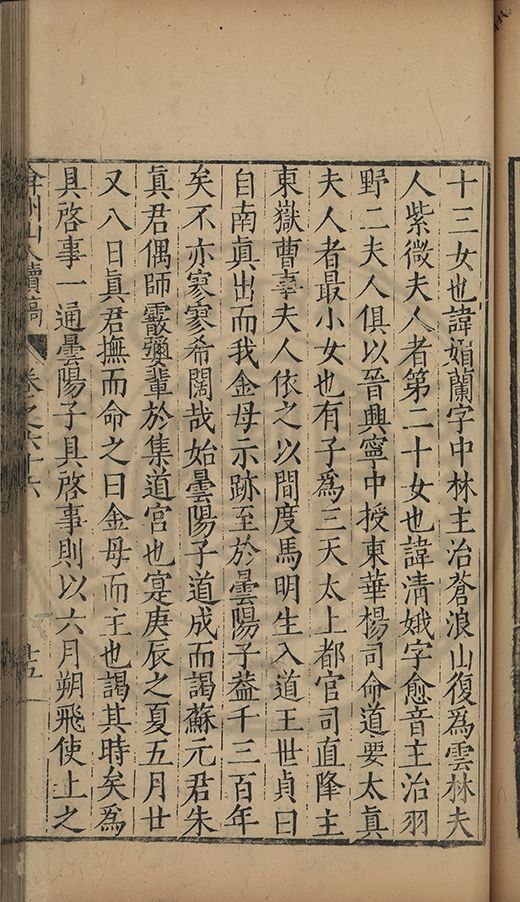 十三女也諱媚蘭字中林主治蒼浪山復為雲林夫
人紫微夫人者第二十女也諱淸娥字愈音主治羽
野二夫人俱以晉興寧中授東華楊司命道要太眞
夫人者最小女也有子為三天太上都官司直降主
東嶽曹奉夫人依之以間度馬明生入道王世貞曰
自南眞出而我金母示跡至於曇陽子葢千三百年
矣不亦寥寥希闊哉始曇陽子道成而謁蘇元君朱
眞君偶師輩於集道宮也寔庚辰之夏五月廿
又八日眞君撫而命之曰金母而主也謁其時矣為
具啓事一通曇陽子具啓事則以六月朔飛使上之
弇州山人續稿 卷之六十六 廿五